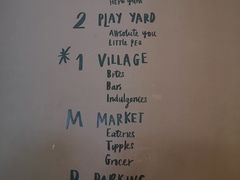 2 PLAY YARD
Absolute You
Little Peg
*1 VILLAGE
Bites
Bars
Indulgences
M MARKET
Eateries
Tipples
Grocer
P PARKING